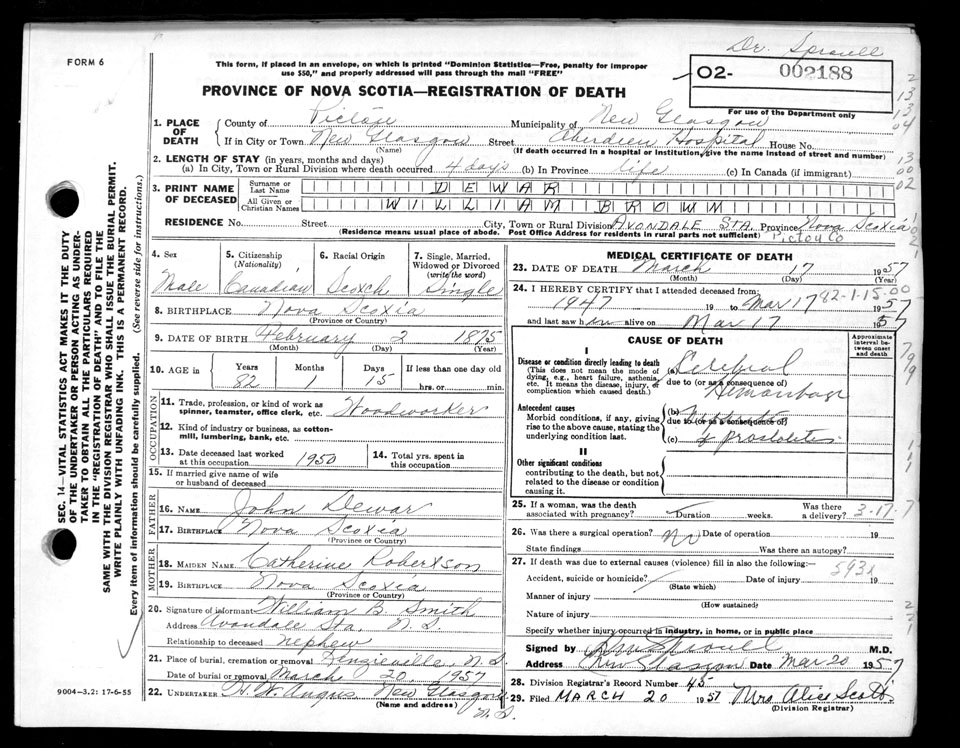 Dr. Sproull
FORM 6
This form, if placed in an envelope, on which is printed "Dominion Statistics—Free, penalty for improper
use $50," and properly addressed will pass through the mail "FREE"
02- 002188
PROVINCE OF NOVA SCOTIA—REGISTRATION OF DEATH
For use of the Department only
1. PLACE OF DEATH
County of Pictou Municipality of New Glasgow
If in City or Town New Glasgow Street Aberdeen Hospital House No.
(Name) (If death occurred in a hospital or institution, give the name instead of street and number)
2. LENGTH OF STAY (in years, months and days)
(a) In City, Town or Rural Division where death occurred 4 days (b) In Province life (c) In Canada (if immigrant)
3. PRINT NAME OF DECEASED
Surname or Last Name DEWAR
All Given or Christian Names WILLIAM BROWN
RESIDENCE No. Street City, Town or Rural Division AVONDALE STA. Province Nova Scotia
(Residence means usual place of abode. Post Office Address for residents in rural parts not sufficient) Pictou Co
4. Sex
Male
5. Citizenship (Nationality)
Canadian
6. Racial Origin
Scotch
7. Single, Married, Widowed or Divorced (write the word)
Single
8. BIRTHPLACE Nova Scotia
(Province or Country)
9. DATE OF BIRTH February 2 1875
(Month) (Day) (Year)
10. AGE in Years Months Days If less than one day old
82 1 15 hrs. or min.
OCCUPATION
11. Trade, profession, or kind of work as
spinner, teamster, office clerk, etc. Woodworker
12. Kind of industry or business, as cotton-
mill, lumbering, bank, etc.
13. Date deceased last worked at this occupation 1950
14. Total yrs. spent in this occupation
15. If married give name of wife
or husband of deceased
FATHER
16. NAME John Dewar
17. BIRTHPLACE Nova Scotia
(Province or Country)
MOTHER
18. MAIDEN NAME Catherine Robertson
19. BIRTHPLACE Nova Scotia
(Province or Country)
20. Signature of informant William B Smith
Address Avondale Sta. N.S.
Relationship to deceased nephew
21. Place of burial, cremation or removal Kenzieville, N.S.
Date of burial or removal March 20, 1957
22. UNDERTAKER H.W. Angus New Glasgow
(Name and address) N.S.
MEDICAL CERTIFICATE OF DEATH
23. DATE OF DEATH March 17 1957
(Month) (Day) (Year)
24. I HEREBY CERTIFY that I attended deceased from:
82-1-15.00
1947 19 to Mar 17 1957
and last saw him alive on Mar 17 1957
CAUSE OF DEATH
Approximate interval between onset and death
I
Disease or condition directly leading to death
(This does not mean the mode of
dying, e.g., heart failure, asthenia,
etc. It means the disease, injury, or
complication which caused death.)
(a) Cerebral
due to (or as a consequence of)
Hemorrhage
Antecedent causes
Morbid conditions, if any, giving
rise to the above cause, stating the
underlying condition last.
(b)
due to (or as a consequence of)
(c)
II
Other significant conditions
contributing to the death, but not
related to the disease or condition
causing it.
25. If a woman, was the death
associated with pregnancy? Duration weeks. Was there a delivery? 3-17-7
26. Was there a surgical operation? No Date of operation 19
State findings Was there an autopsy?
27. If death was due to external causes (violence) fill in also the following:—
Accident, suicide or homicide? Date of injury 19
(State which)
Manner of injury
(How sustained)
Nature of injury
Specify whether injury occurred in industry, in home, or in public place
Signed by Sproull M.D.
Address New Glasgow Date Mar 20 1957
28. Division Registrar's Record Number 45
29. Filed MARCH 20 1957 Mrs Alice Scott
(Division Registrar)
SEC. 14—VITAL STATISTICS ACT MAKES IT THE DUTY
OF THE UNDERTAKER OR PERSON ACTING AS UNDER-
TAKER TO OBTAIN ALL THE PARTICULARS REQUIRED
IN THE "REGISTRATION OF DEATH" AND TO FILE THE
SAME WITH THE DIVISION REGISTRAR WHO SHALL ISSUE THE BURIAL PERMIT.
WRITE PLAINLY WITH UNFADING INK. THIS IS A PERMANENT RECORD.
Every item of information should be carefully supplied. (See reverse side for instructions.)
9004-3.2: 17-6-55